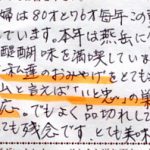 婦は80才と76才毎年この
ています。本年は燕岳に
醍醐味を満喫していま
た私達のおみやげをとても
山と言えば「い忠」の
応。でもよく品切れして
ても残念です、とても美味